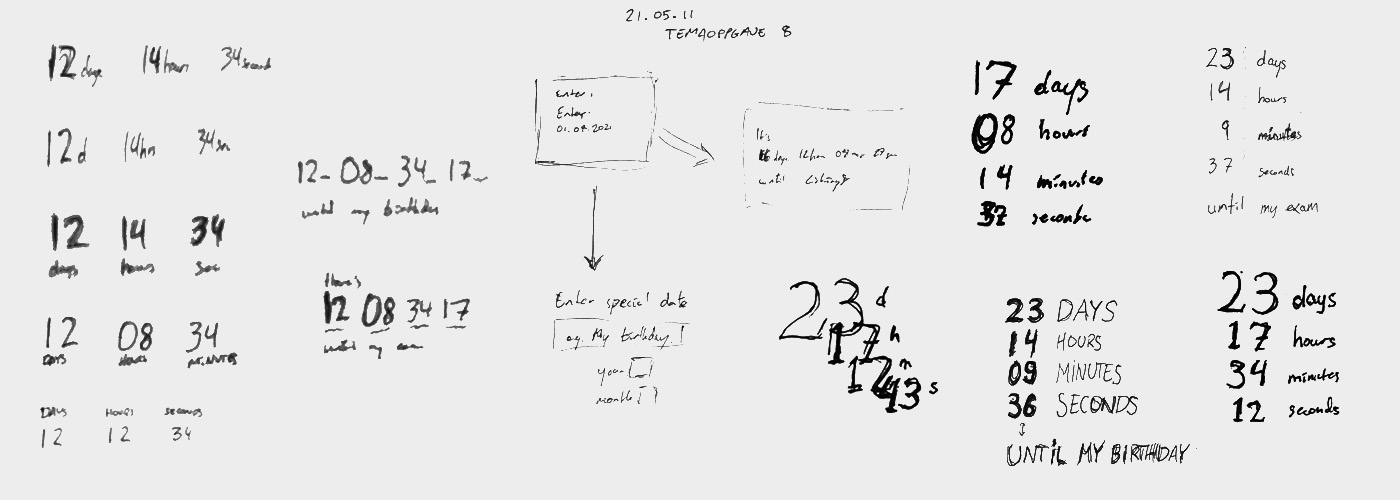 21.05.11
TEMAOPPGAVE 8
12 days 14 hours 34 seconds
12 d 14 hn 34 sn
12 14 34
days hours sec
12 08 34
DAYS HOURS MINUTES
DAYS HOURS SECONDS
12 12 34
12 08 34 17
until my birthday
12 08 34 17
until my exam
Enter
Enter
It's
until
Enter special date
eg. My birthday
year
month
23 d
17 h
12 m
43 s
17 days
08 hours
14 minutes
37 seconds
23 days
14 hours
9 minutes
37 seconds
until my exam
23 DAYS
14 HOURS
09 MINUTES
36 SECONDS
UNTIL MY BIRTHDAY
23 days
17 hours
34 minutes
12 seconds